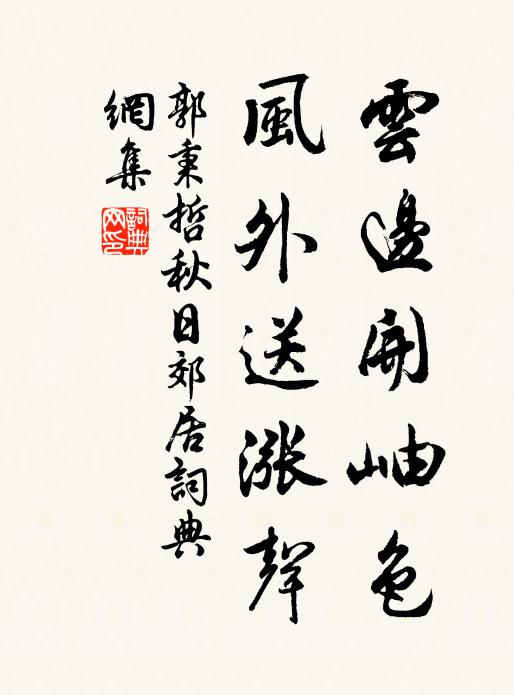 雲邊開岫色
風外送漲聲
郭秉哲秋日郊居詞典
網集
詞典
网印